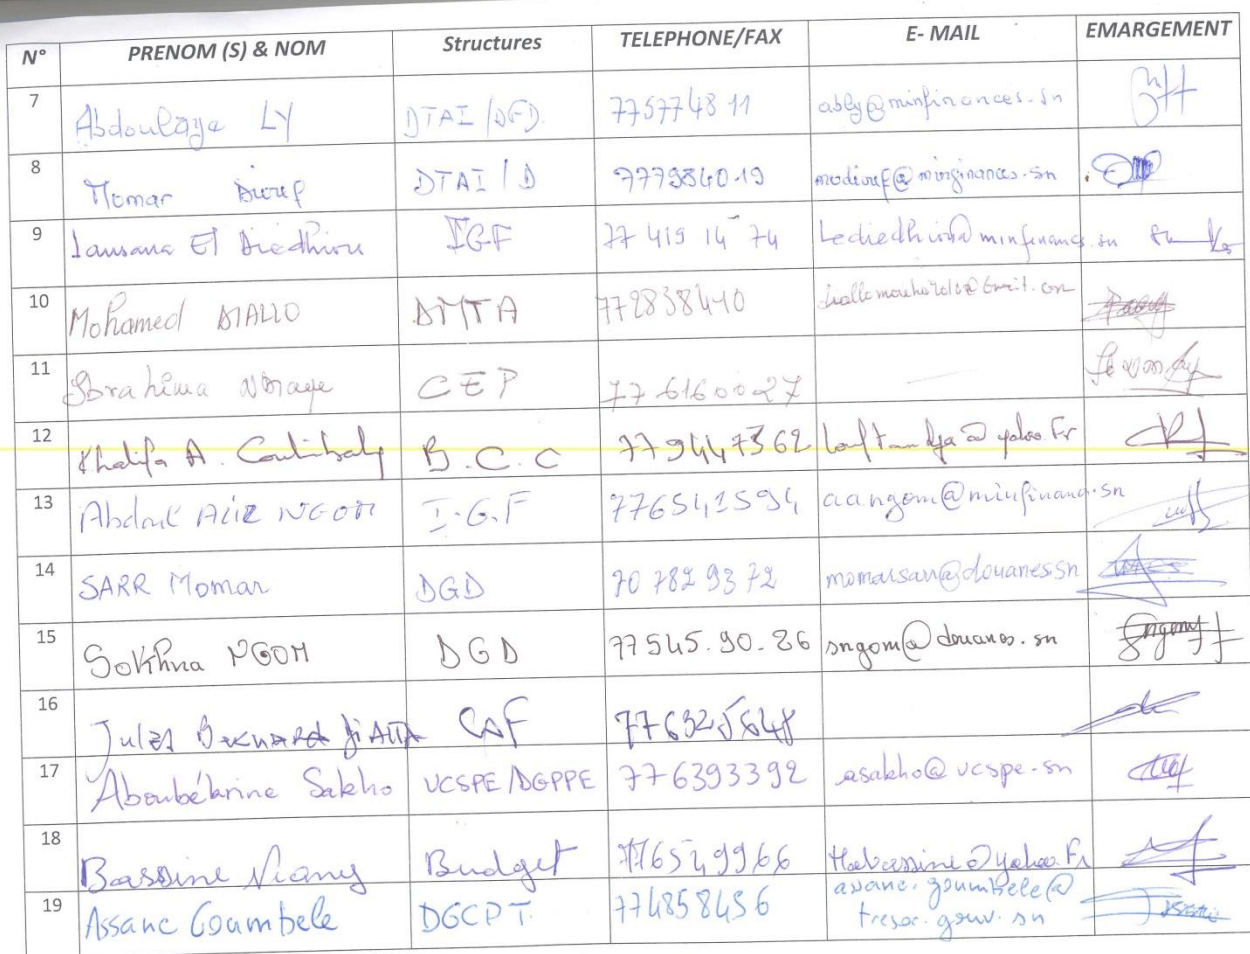 N° PRENOM (S) & NOM Structures TELEPHONE/FAX E- MAIL EMARGEMENT
7 Abdoulaye LY DTAI/DFD 775774811 ably@minfinances.sn
8 Momar Diouf DTAI/D 7779840.19 modiouf@minfinances.sn
9 Lansana El Diedhiou IGF 77 419 14 74 Lediedhiou@minfinances.sn
10 Mohamed DIALLO DMTA 772838440
11 Ibrahima NDiaye CEP 77 6160027
12 Khalifa A. Coulibaly B.C.C 779447362
13 Abdoul Aziz NGOM I.G.F 776541594 aangom@minfinances.sn
14 SARR Momar DGD 70 782 93 72 momarsarr@douanes.sn
15 Sokhna NGOM DGD 77545.90.26 sngom@douanes.sn
16 Jules Bernard DiATTA CAF 776325648
17 Aboubékrine Sakho UCSPE/DGPPE 776393392 asakho@ucspe-sn
18 Bassine Niang Budget 776549966 Habassine@yahoo.Fr
19 Assane Goumbele DGCPT 774858456 assane.goumbele@
tresor.gouv.sn